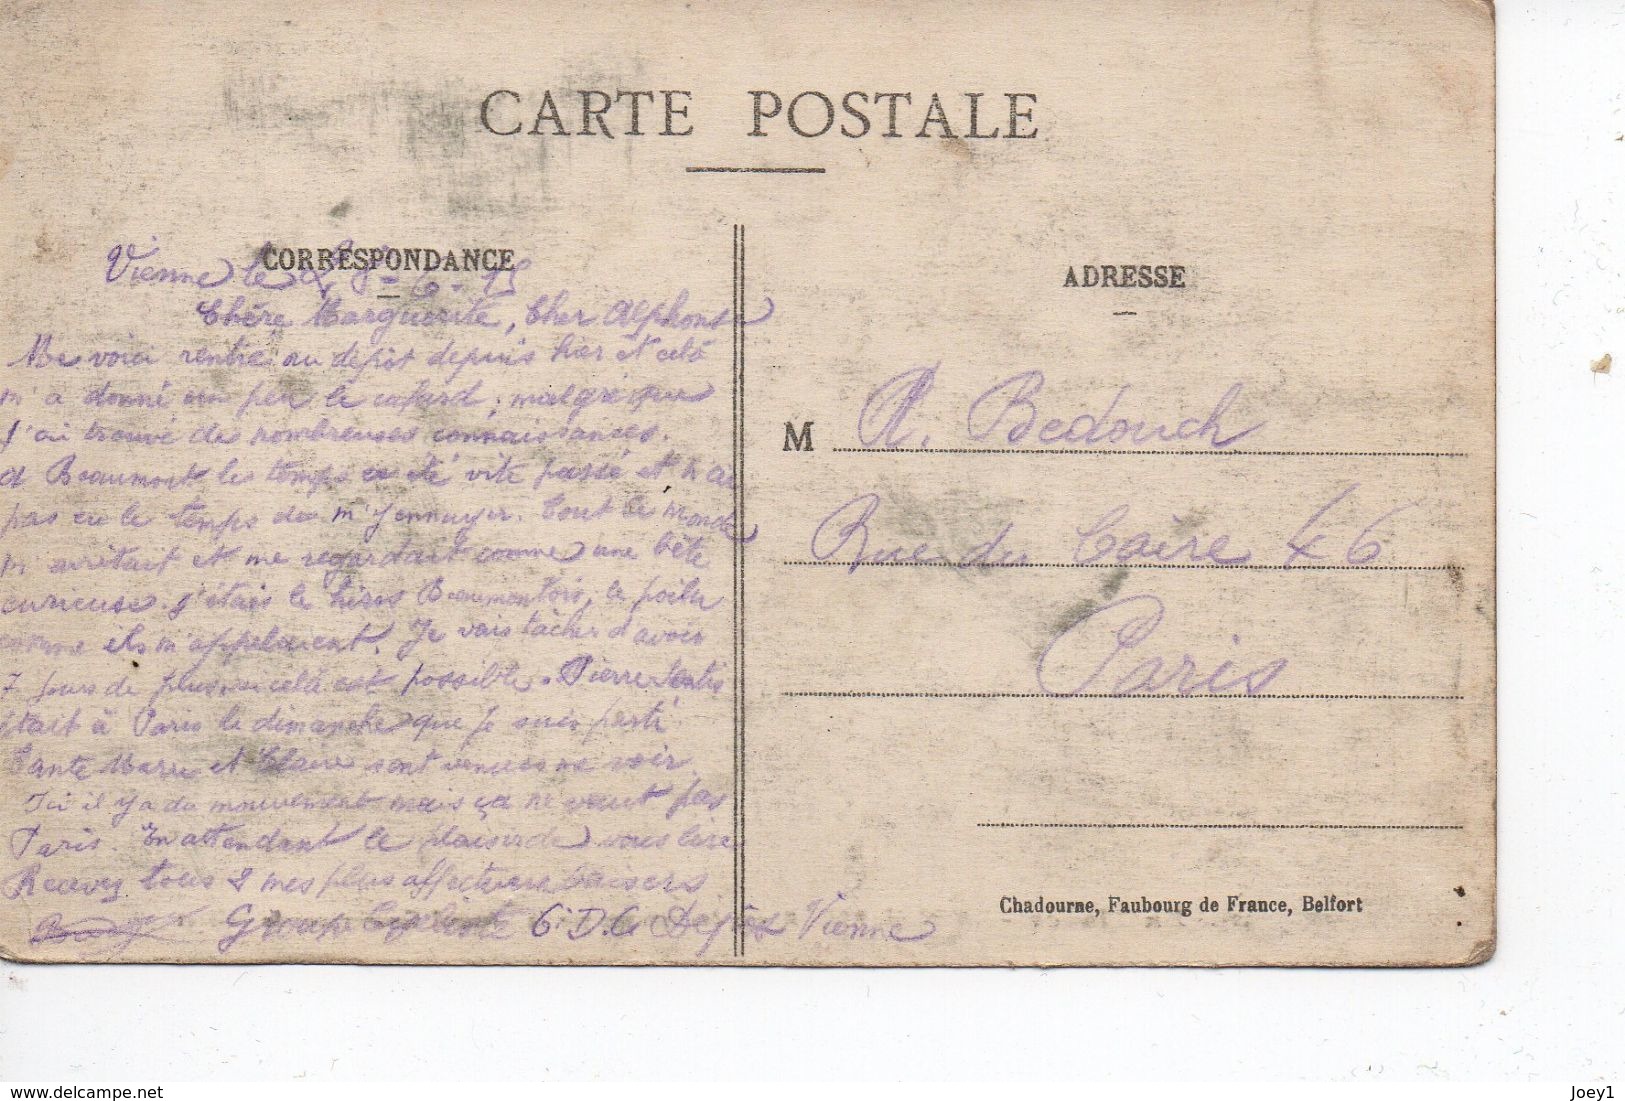 CARTE POSTALE
CORRESPONDANCE
Vienne le 28-6-15
Chère Marguerite, Cher Alphonse
Me voici rentré au dépôt depuis hier et celà
m'a donné un peu le cafard, malgré que
j'ai trouvé des nombreuses connaissances.
A Beaumont les temps a été vite passé et n'ai
pas eu le temps de m'ennuyer. Tout le monde
m'arrêtait et me regardait comme une bête
curieuse. J'étais le héros Beaumontois, le poilu
comme ils m'appelaient. Je vais tâcher d'avoir
7 jours de plus, si celà est possible. Pierre
était à Paris le dimanche que je suis parti
Tante Marie et Claire sont venues me voir.
Ici il y a du mouvement mais ça ne vaut pas
Paris. En attendant le plaisir de vous lire
Recevez tous 2 mes plus affectueux baisers
Groupe 6e D.C. Dépôt Vienne
ADRESSE
M A. Bedouch
Rue du Caire 46
Paris
Chadourne, Faubourg de France, Belfort
http://www.delcampe.net
Joey1